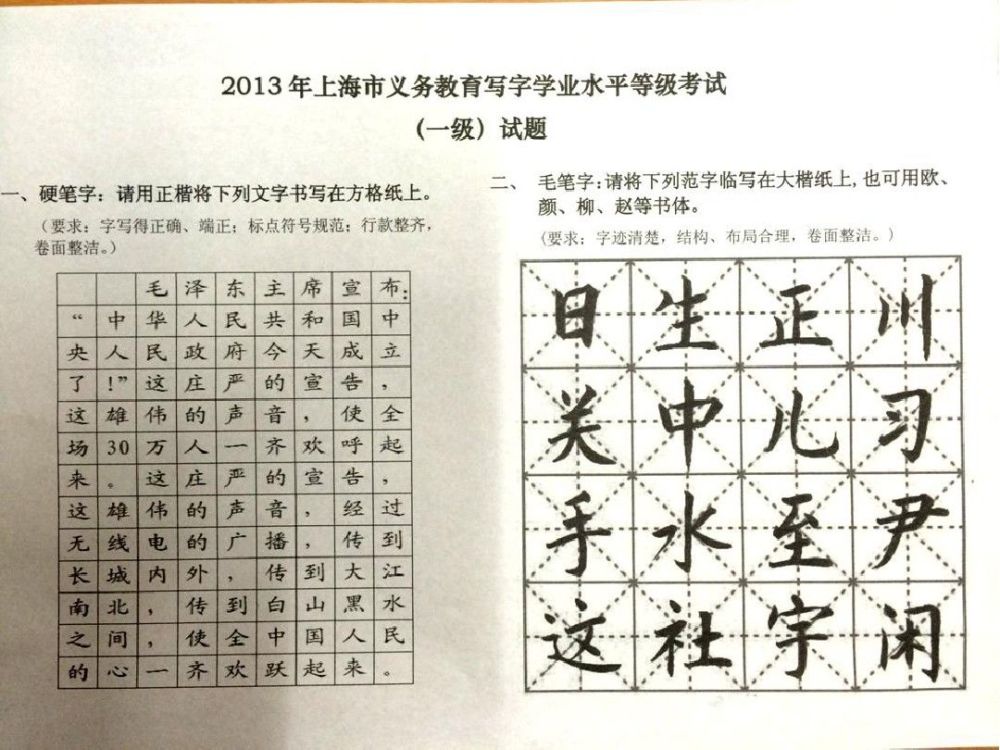 2013年上海市义务教育写字学业水平等级考试
(一级) 试题
一、硬笔字：请用正楷将下列文字书写在方格纸上。
（要求：字写得正确、端正；标点符号规范；行款整齐，
卷面整洁。）
毛泽东主席宣布：
“中华人民共和国中
央人民政府今天成立
了！”这庄严的宣告，
这雄伟的声音，使全
场30万人一齐欢呼起
来。这庄严的宣告，
这雄伟的声音，经过
无线电的广播，传到
长城内外，传到大江
南北，传到白山黑水
之间，使全中国人民
的心一齐欢跃起来。
二、毛笔字：请将下列范字临写在大楷纸上，也可用欧、
颜、柳、赵等书体。
（要求：字迹清楚，结构、布局合理，卷面整洁。）
日生正川
关中儿习
手水至尹
这社字闲